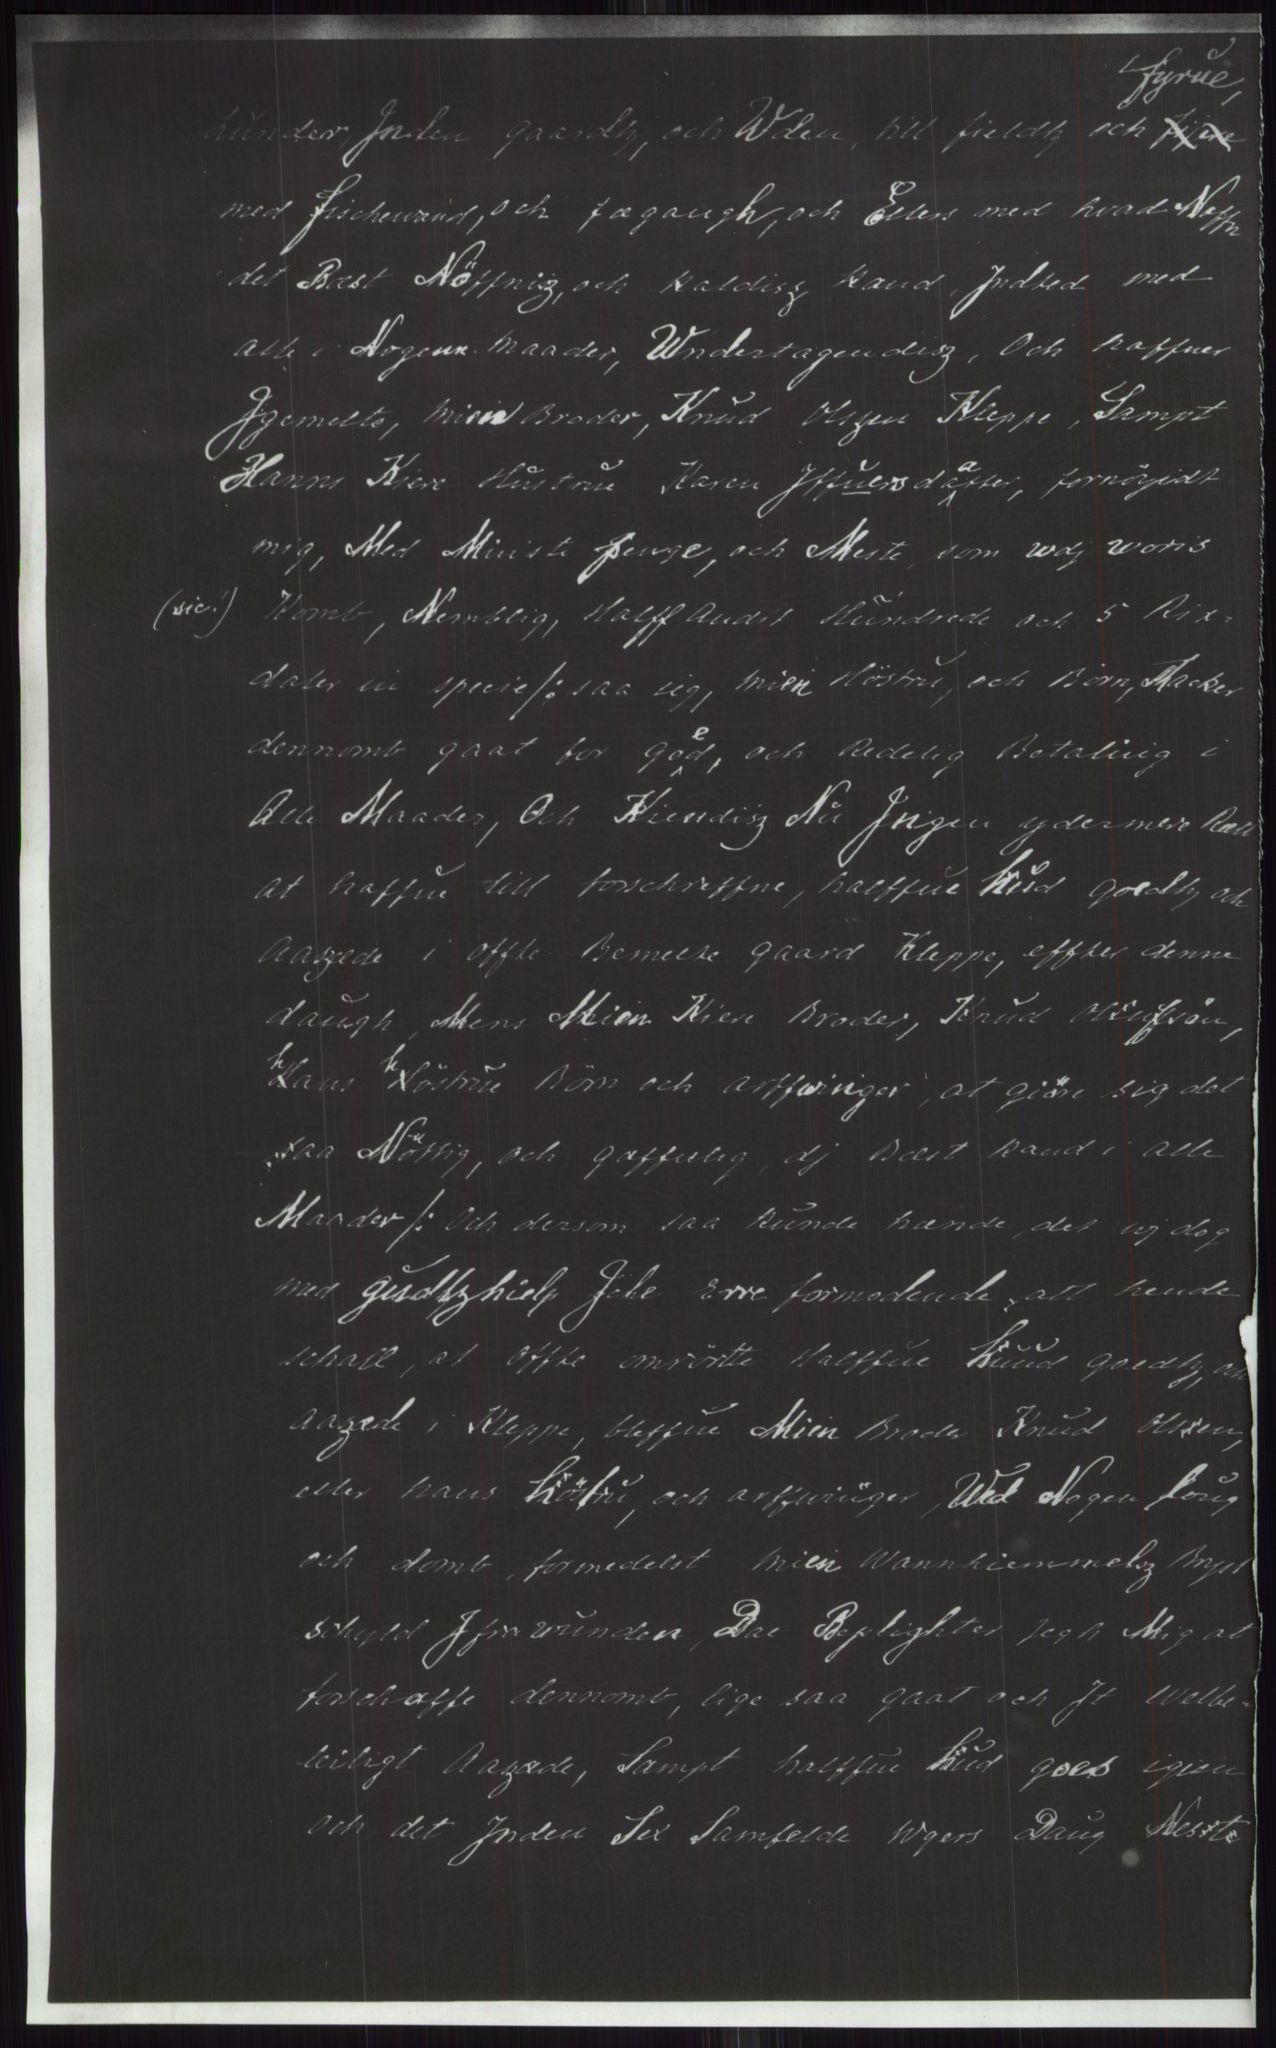 fyrue,
hunder Inden gaardtz, och Uden, till fieldtz och
med fischevand, och fægangh, och Ellers med hvad Naffn
det Bæst Nöffnis, och kaldisz kand, Indted med
alle i Nogenn Maader, Undertagendisz, Och haffuer
Igemelte, Mien Broder, Knud Olszen Kleppe, Sampt
Hanns Kiere Hustrue Karen Iffuersdaatter, fornöyedt
mig, Med Minste Penge, och Meste, som wdj woris
(sic!) Komb, Nemblig, Halff Andit Hundrede och 5 Rix-
daler in specie /: saa ieg, Mien Höstru, och Börn, Tacker
dennomb gaat for goed, och Redelig Betaling i
Alle Maader, Och Kiendisz Nu Ingen ydermere Rett
at haffue till forschreffne, halffue Hud goedtz och
Aaszæde i offte Bemelte gaard Kleppe, effter denne
daugh, Mens Mien Kiere Broder, Knud Olufsön,
Hans Höstrue Börn och arffwinger, at giöre sig det
saa Nöttig, och gaffnlig, dj Bæst kand i Alle
Maader /: Och dersom saa kunde hænde, det wj dog
med gudtzhielp Iche Erre formodende, att hende
schall, at offte omrörtte Halffue Huud goedtz, och
Aazæde i Kleppe, bleffue Mien Broder Knud Olsen,
eller hans Höstru, och arffwinger, Wed Nogen Loug
och domb, formedelst Mien Wannhiemmelsz Bryst
schyld Ifrawunden, Da Beplighter jegh Mig at
forschaffe dennomb, lige saa gaat och It Welbe-
leiligt Aazæde, Sampt halffue Hud goes igien
och det Inden Sex Samfelde Ugers Daug Neste